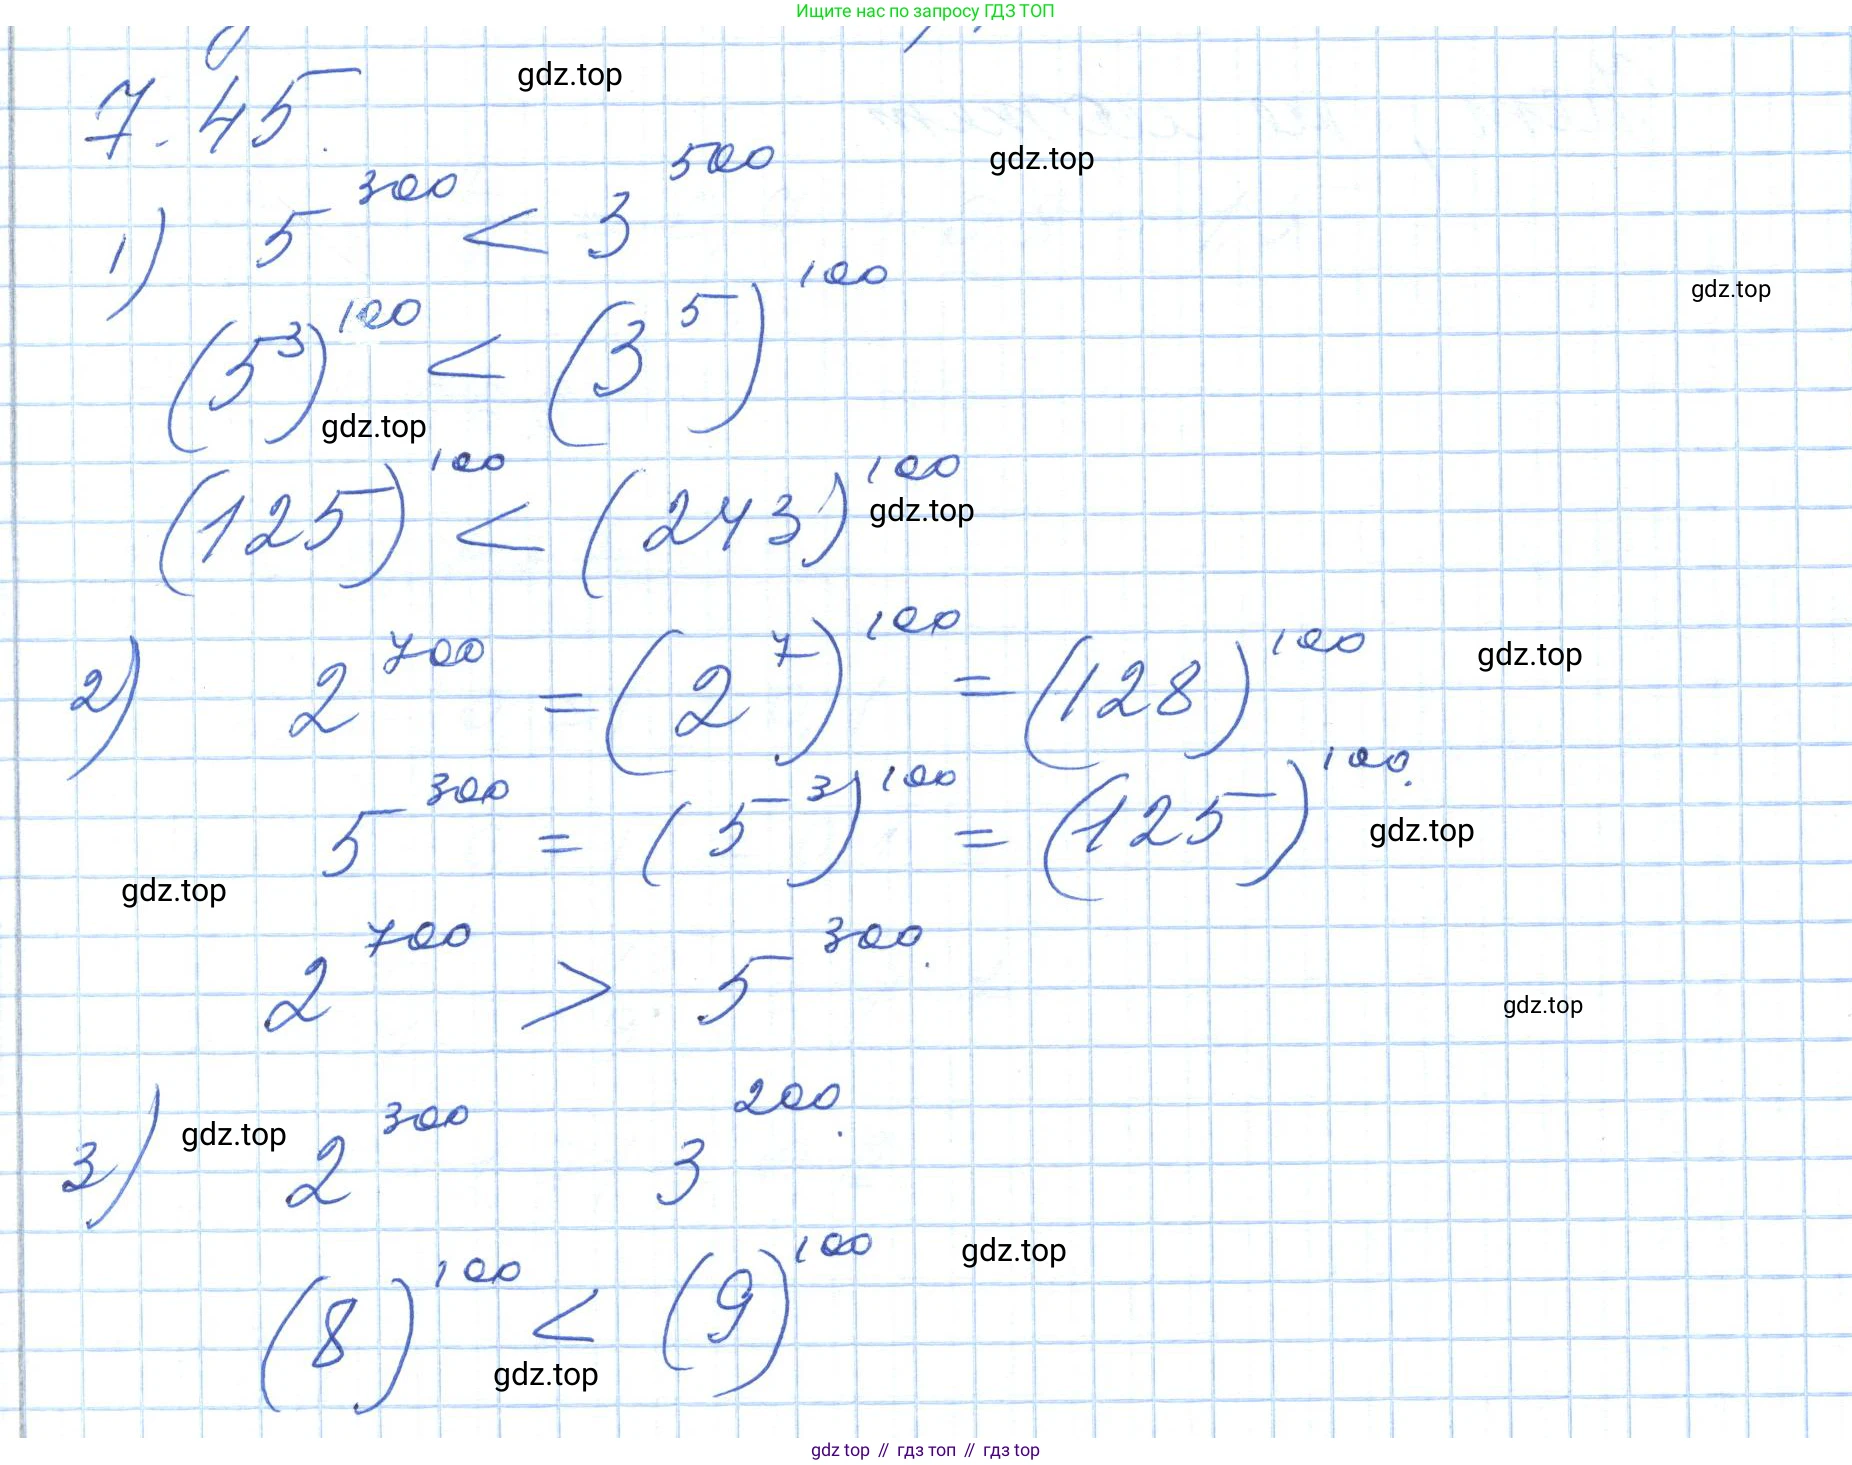 Ищите нас по запросу ГДЗ ТОП
gdz.top
7.45.
gdz.top
1) 5^300 < 3^500
gdz.top
(5^3)^100 < (3^5)^100
gdz.top
(125)^100 < (243)^100
gdz.top
2) 2^700 = (2^7)^100 = (128)^100
gdz.top
5^300 = (5^3)^100 = (125)^100.
gdz.top
gdz.top
2^700 > 5^300.
gdz.top
3) 2^300 3^200.
gdz.top
(8)^100 < (9)^100
gdz.top
gdz.top
gdz top // гдз топ // гдз top